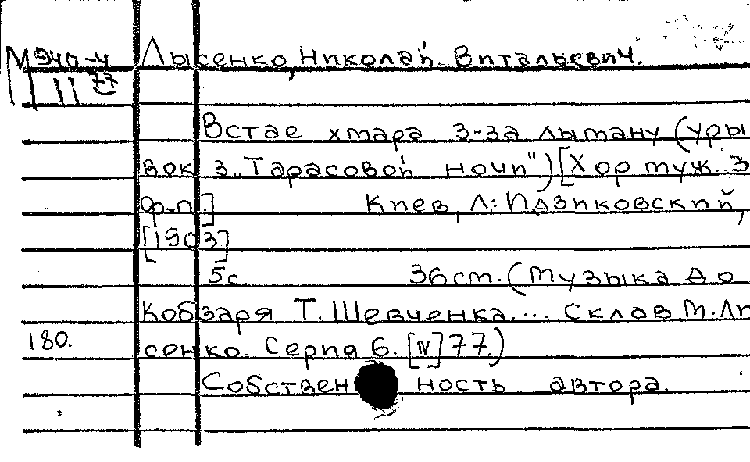 М 940-4 Лысенко, Николай Витальевич.
II 77
Встае хмара з-за лыману (уры
вок з „Тарасовой ночи") [Хор муж. З
ф-п.] Киев, Л. Идзиковский,
[1903]
5с 36cm. (Музыка до
Кобзаря Т. Шевченка.... Склав М. Лы
180. сенко. Серия 6. [IV] 77.)
Собственность автора.